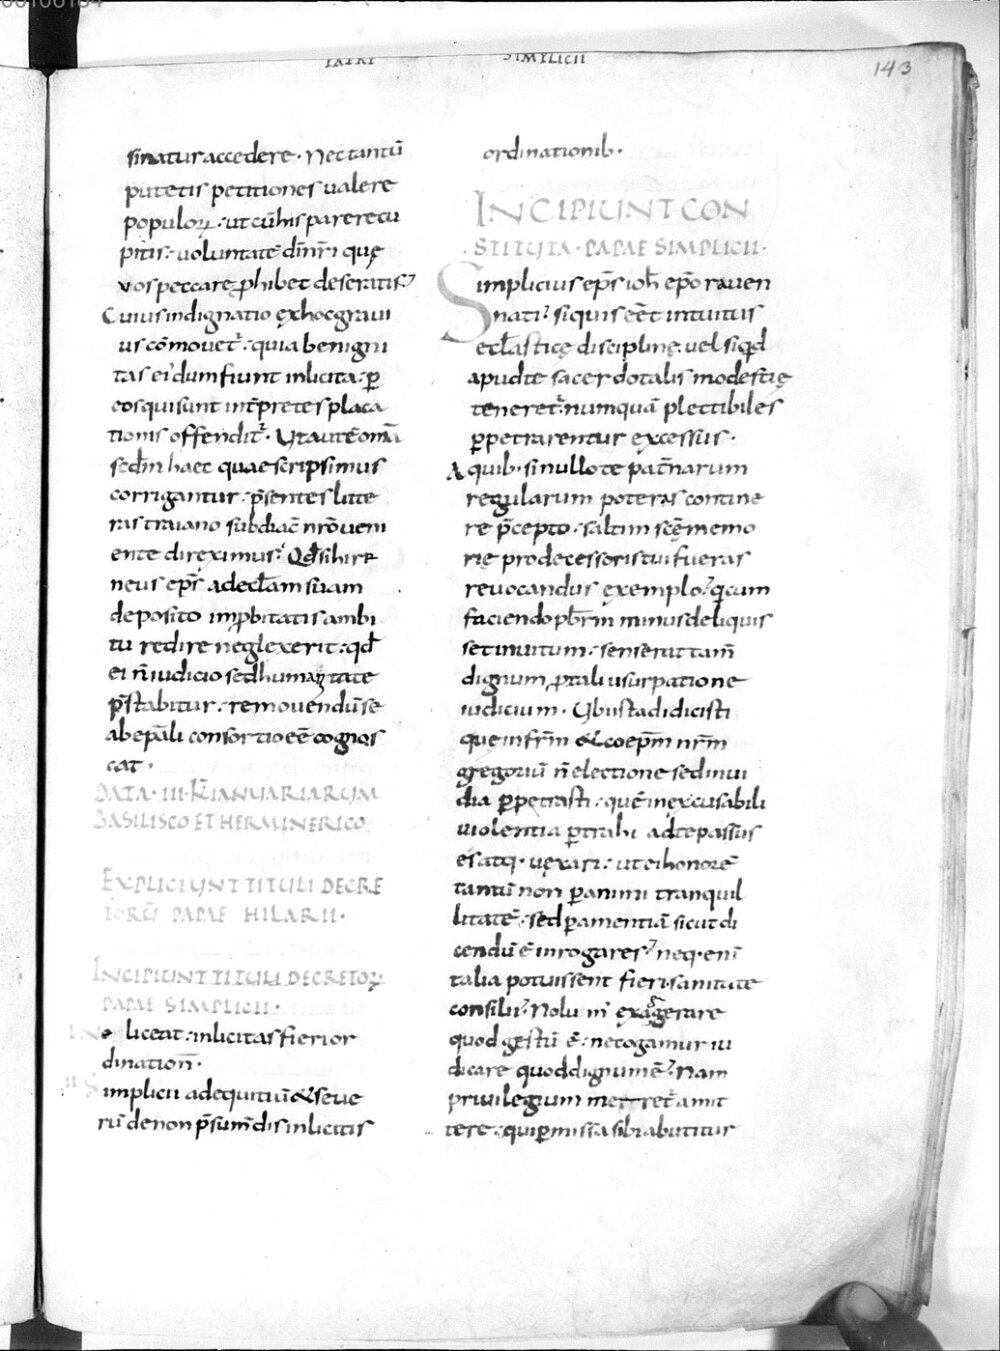 PAPAE SIMPLICII
143
sinatur accedere. Nec tantū
putetis petitiones valere
populoꝝ. ut cū his parere cu
pitis. voluntatē dī nr̄i quę
vos peccare ꝓhibet deseratis;
Cuius indignatio ex hoc gravi
us cōmovet̄. quia benigni
tas ei dum fiunt inlicita. ꝑ
eos qui sunt int̄pretes placa
tionis offendit̄. Ut autē om̄ā
secdm̄ haec quae scripsimus
corrigantur. p̄sentes litte
ras traiano subdiac̄ nr̄o veni
ente direximus. Qd̄ si hire
neus ep̄s ad ecl̄am suam
deposito imꝓbitatis ambi
tu redire neglexerit. qd̄
ei n̄ iudicio sed humanitate
p̄stabitur. removendū se
ab ep̄ali consortio eē cognos
cat.
DATA. III. K̄L IANUARIARUM
BASILISCO ET HERMINERICO
EXPLICIUNT TITULI DECRE
TORŪ PAPAE HILARII.
INCIPIUNT TITULI DECRETOꝜ
PAPAE SIMPLICII.
I Ne liceat inlicitas fieri or
dination̄.
II Simplicii ad equitiū & seve
rū de non p̄sum̄dis inlicitis
ordinationib.
INCIPIUNT CON
STITUTA. PAPAE SIMPLICII.
Simplicius ep̄s ioh̄ ep̄o raven
nati. si quis eēt intuitus
ecl̄asticę disciplinę. vel si qd̄
apud te sacerdotalis modestię
teneret̄. numquā plectibiles
ꝑpetrarentur excessus.
A quib. si nullo te pat̄narum
regularum poteras contine
re p̄cepto. saltim scę̄ memo
rię prodecessoris tui fueras
revocandus exemplo. qicum
faciendo pb̄rm̄ minus deliquis
set invitum. senserat tam̄
dignum ꝓ tali usurpatione
iudicium. Ubi ista didicisti
que in fr̄m & coep̄m nr̄m
gregoriū n̄ electione sed invi
dia ꝑpetrasti. quē inexcusabili
violentia ꝑtrahi ad te passus
es atq. vexari. ut ei honorē
tantū non ꝑ animi tranquil
litatē. sed ꝑ amentiā sicut di
cendū ē inrogares. neq. enī
talia potuissent fieri sanitate
consilii. Nolum̄ exaggerare
quod gestū ē. ne cogamur iu
dicare quod dignum ē. Nam
privilegium meretr̄ amit
tere. qui ꝑmissa sibi abutitur